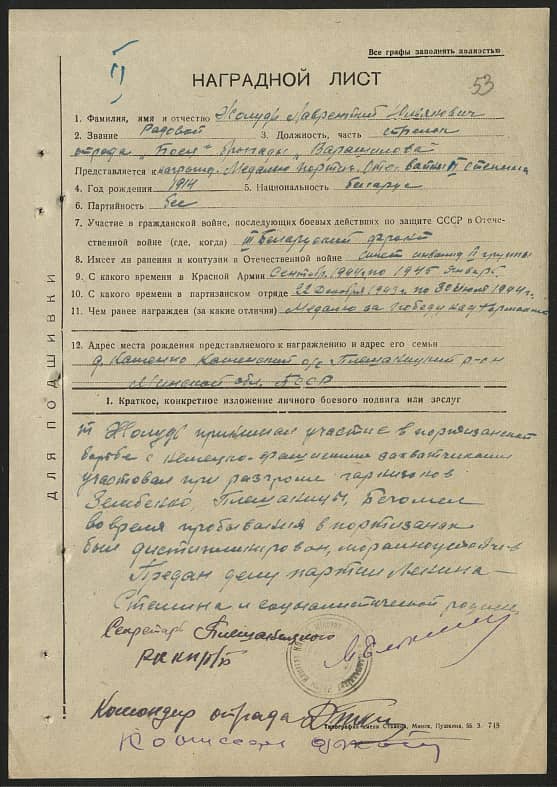 Все графы заполнять полностью
II
53
НАГРАДНОЙ ЛИСТ
1. Фамилия, имя и отчество Жолудь Лаврентий
2. Звание Рядовой 3. Должность, часть стрелок
отряда "Боевик" бригады "
Представляется к награжд. Медалью Партиз. Отс. войны II степени
4. Год рождения 1914 5. Национальность беларус
6. Партийность бес
7. Участие в гражданской войне, последующих боевых действиях по защите СССР в Отече-
ственной войне (где, когда) III Беларуский фронт
8. Имеет ли ранения и контузии в Отечественной войне инвалид II группы
9. С какого времени в Красной Армии Сентябр. 1944 по 1945 январь
10. С какого времени в партизанском отряде 22 Декабря 1943 г. по 30 Июня 1944 г.
11. Чем ранее награжден (за какие отличия) Медалью за Победу над Германией
12. Адрес места рождения представляемого к награждению и адрес его семьи
д. с/с Плещаницкий р-он
Минской обл. БССР
1. Краткое, конкретное изложение личного боевого подвига или заслуг
т. Жолудь принимал участие в партизанской
борьбе с немецко-фашискими захватчиками
участвовал при разгроме гарнизонов
Зембено, Плещаницы, Бегомль
во время пребывания в партизанах
был дистиплинирован, морально устойчив
Предан делу партии Ленина -
Сталина и социалистической родине
Секретарь Плещаницкого
РК КП/б/Б
Командир отряда
Комиссар отряда
Типография имени Сталина, Минск, Пушкина, 55 З. 749
ДЛЯ ПОДШИВКИ